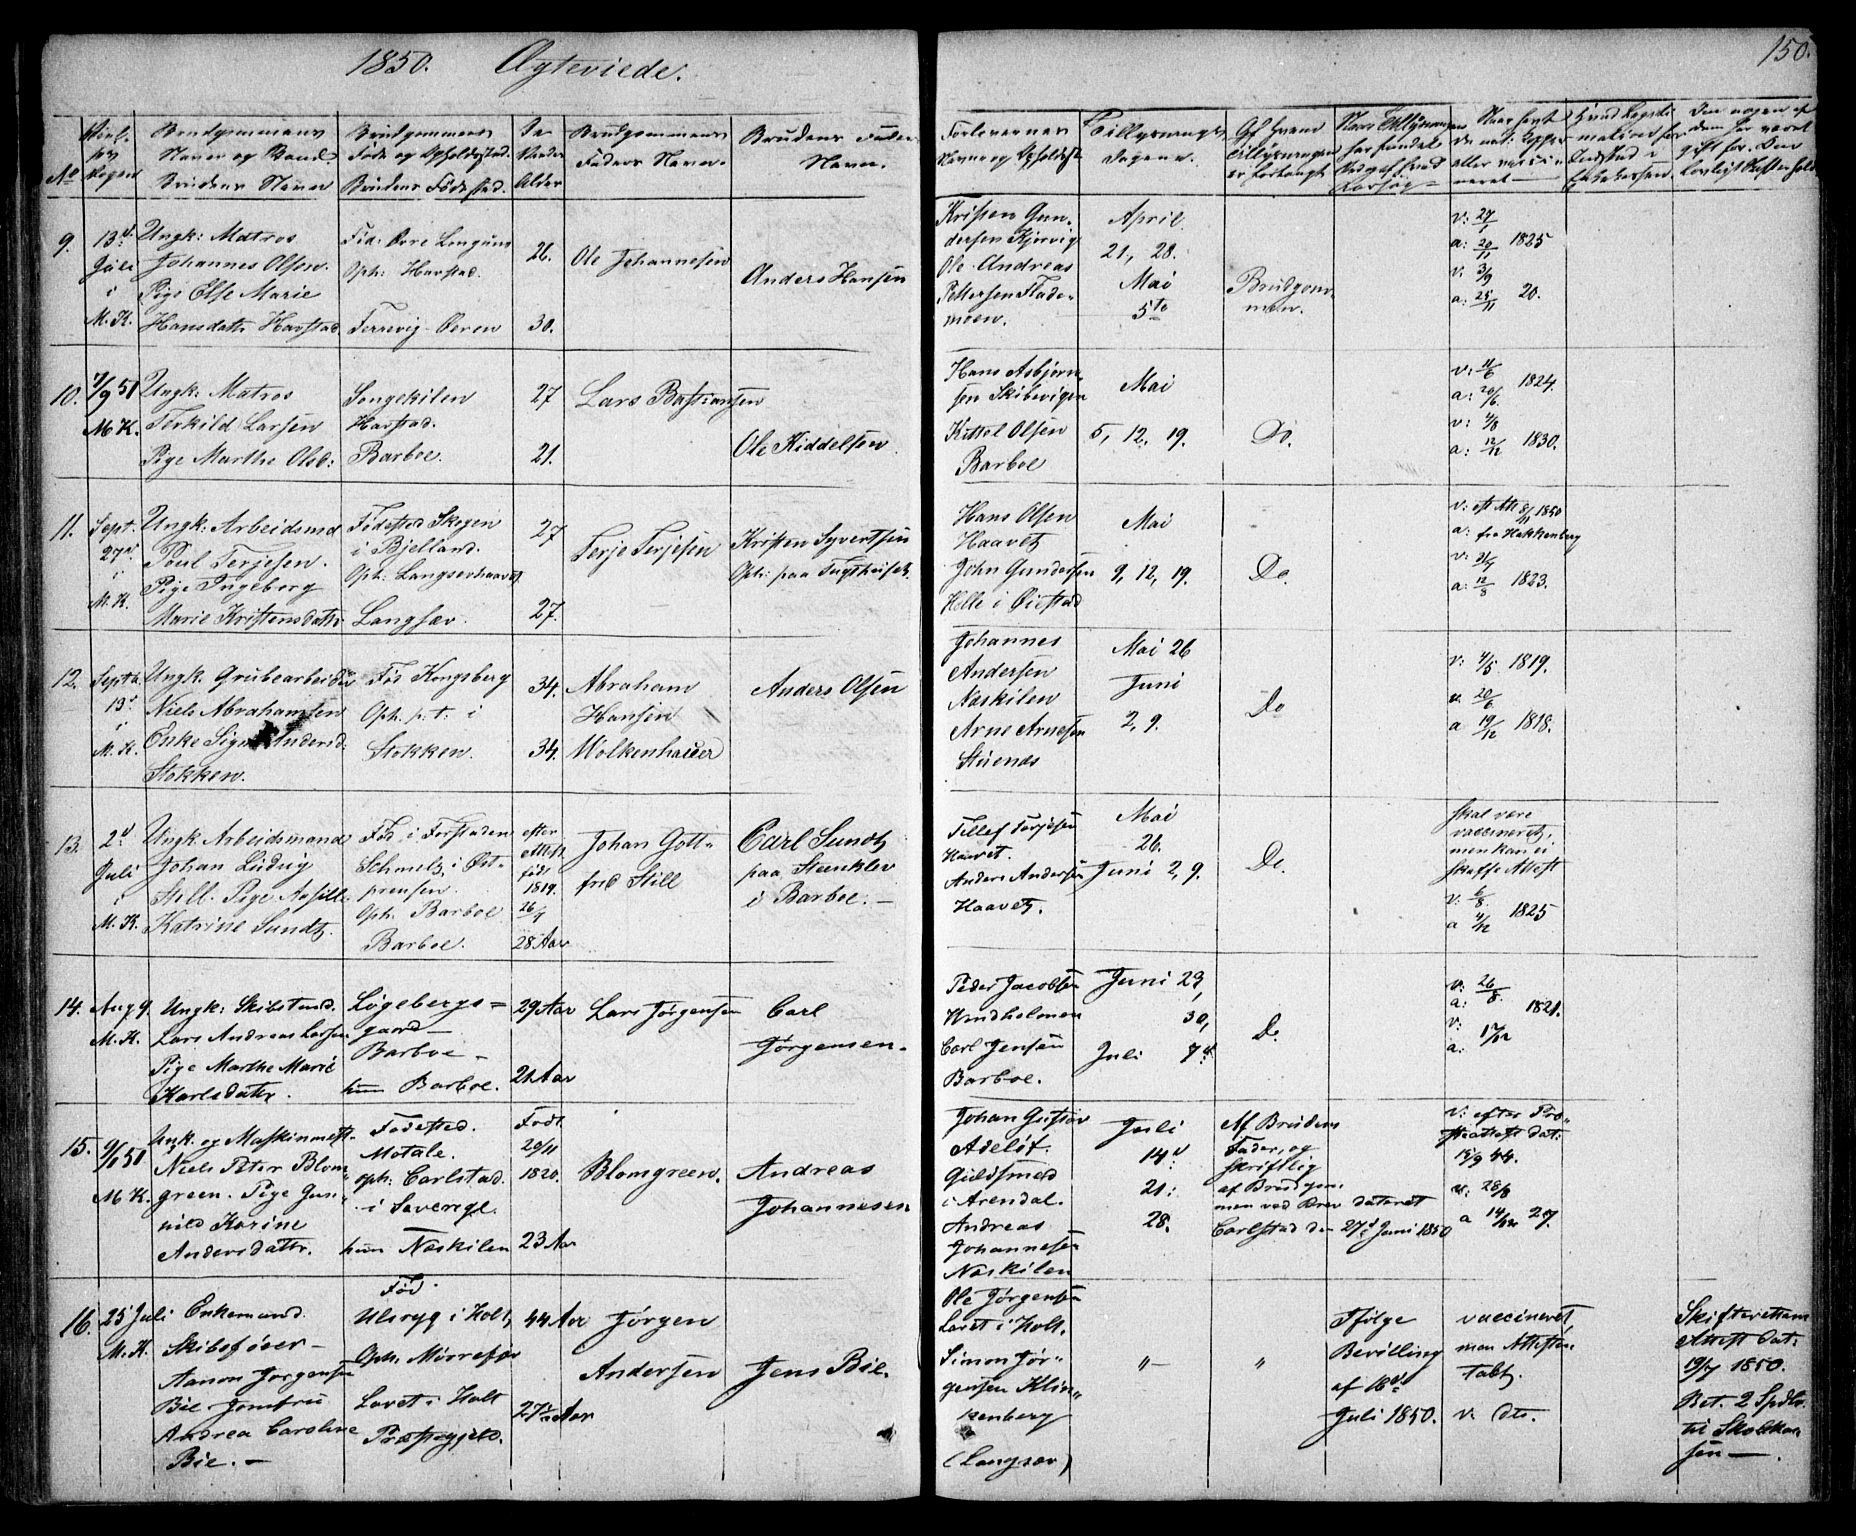 1850. Ægteviede.
150.
No
Brudgommens
Navn og Stand.
Brudens Navn
Brudgommens
Føde og Opholdsstad.
Brudens Fødestad.
Alder
Brudgommens
Faders Navn.
Brudens Faders
Navn.
Forlovernes
Navne og Opholdst
Tillysnings
Dagene.
Af hvem
Tillysningen
er forlangt
9.
13d
Juli
i
M. K.
Ungk: Matros
Johannes Olsen.
Pige Else Marie
Hansdattr Havstad.
Fød: Øvre Lougum
Oph: Havstad.
Terrevig-Oeren
26.
30.
Ole Johannesen
Anders Hansen
Kristen Gun-
dersen Kjørvig
Ole Andreas
Pettersen Flade-
moen.
April.
21, 28.
Mai
5te
Brudgom-
men.
v: 27/1
a: 20/11 1825
v: 3/9
a: 25/11 20.
10.
7/9 51
M. K.
Ungk: Matros
Terkild Larsen
Pige Marthe Olsd:
Songekilen
Havstad.
Barboe.
27
21.
Lars Bastiansen
Ole Kiddelsen
Hans Asbjørn-
sen Skibvigen
Kittel Olsen
Barboe
Mai
5, 12, 19.
Do.
v: 11/6
a: 20/6 1824.
v: 4/8
a: 12/12 1830.
11.
Sept.
27d
i
M. K.
Ungk: Arbeidsmd
Poul Terjesen.
Pige Ingeborg
Marie Kristensdattr
Fødested Skogen
i Bjelland.
Oph: Langsevhaavet
Langsæv.
27
27.
Terje Terjesen
Kristen Syvertsen
Oph: paa Tugthuset
Hans Olsen
Haavet
John Gundersen
Helle i Øiestad
Mai
9, 12, 19.
Do.
v: eft Att 8/11 1850
a: fra Hakkenberg
v: 21/7
a: 12/8 1823.
12.
Septb.
13d
i
M. K.
Ungk. Grubearbeider
Niels Abrahamsen
Enke Signe Andersd.
Stokken.
Fød Kongsberg
Oph. p: t: i
Stokken.
34.
34.
Abraham
Hansen
Wolkenhauer
Anders Olsen
Johannes
Andersen
Naskilen
Arne Arnesen
Stuenes
Mai 26
Juni
2, 9.
Do
v: 4/5 1819.
v. 20/6
a 19/12 1818.
13.
2d
Juli
i
M. K.
Ungk Arbeidsmand
Johan Ludvig
Still. Pige Aasille
Katrine Sundt.
Fød i Forstaden
Schmelz, i Øst-
preusen.
Oph. Barboe
Barboe.
efter
Attest
født
1819.
26/4
28 Aar
Johan Gott-
fred Still
Carl Sundt
paa Steenklev
i Barboe.-
Tellef Terjesen
Haavet.
Anders Andersen
Haavet.
Mai
26.
Juni 2, 9.
Do.
skal være
vaccineret,
men kan ei
skaffe Attest
v. 6/8.
a 4/12 1825
14.
Aug 9.
M. K.
Ungk: Skibstmd.
Lars Andreas Larsen
Pige Marthe Marie
Karlsdattr.
Løgebergs=
gaard-
Barboe-
hun Barboe.
29 Aar
21 Aar
Lars Jørgensen
Carl
Jørgensen.
Peder Jacobsen
Windholmen
Carl Jensen
Barboe.
Juni 23,
30,
Juli 7d
Do.
v: 26/8.
a:
1821.
v:
a: 17/12
15.
9/1 51
M. K.
Unk. og Maskinmest.
Niels Peter Blom-
green. Pige Gun-
nild Karine
Andersdattr.
Fødested.
Motale.
oph: Carlstad.
i Sverrige.
hun Næskilen
Født
20/11
1820.
23 Aar
Blomgreen.
Andreas
Johannesen
Johan Gustav
Adeløf.
Guldsmed
i Arendal.
Andreas
Johannesen
Næskilen
Juli
14d
21.
28.
Af Brudens
Fader, og
skriftlig
af Brudgom-
men ved Brev dateret
Carlstad den 27d Juni 1850
v: efter Præ-
steattest dat:
15/9 44.
v: 28/8
a 14/12 27.
16.
25 Juli
M. K.
Enkemand.
Skibsfører-
Aanon Jørgensen
Bie-Jomfru
Andrea Caroline
Bie.-
Fød.
Ulsryg i Holt,
Oph. Mørrefær
Lovet i Holt
Præstegjeld.
44 Aar
27½ Aar
Jørgen
Andersen
Jens Bie.
Ole Jørgensen
Lovet i Holt.
Simon Jør-
gensen Klin-
kenberg
(Langsæv)
"-
"
Ifølge
Bevilling
af 16d
Juli 1850.
vaccineret,
men Attesten
tabt.
v. dto.
Skifterettens
Attest dat:
19/7 1850.
Bet. 2 Spdlr.
til Skolekas-
sen-.